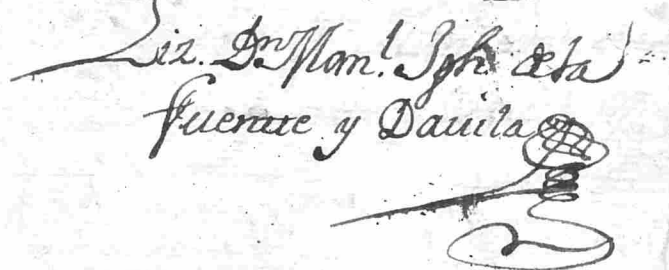 Liz. Dn Man.l Jph de la
Fuente y Davila